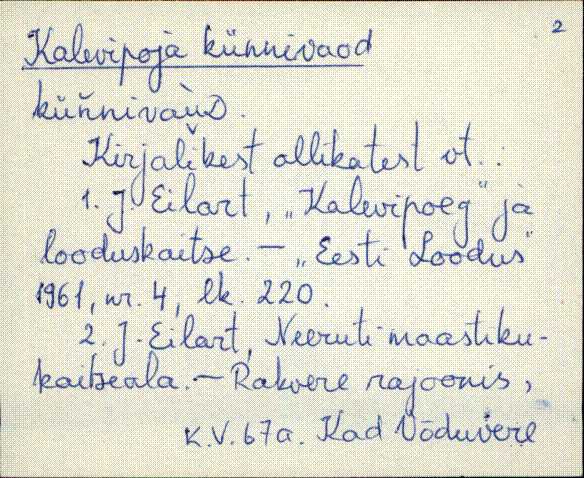 2
Kalevipoja künnivaod
küńnivaùD.
Kirjalikest allikatest vt.:
1. J. Eilart, „Kalevipoeg" ja
looduskaitse. – „Eesti Loodus"
1961, nr. 4, lk. 220.
2. J. Eilart, Neeruti maastiku-
kaitseala. – Rakvere rajoonis,
K.V. 67a. Kad Võduvere